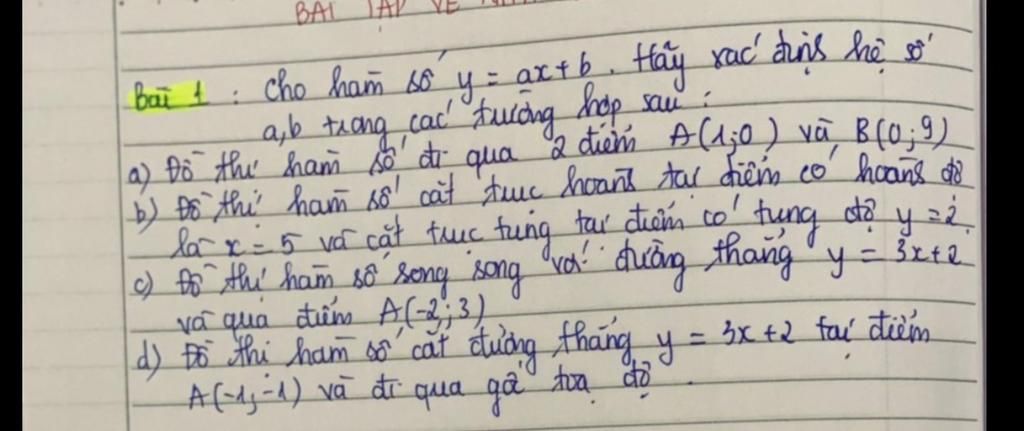 BÀI TẬP VỀ
Bài 1 : Cho hàm số y = ax + b. Hãy xác định hệ số
a, b trong các trường hợp sau :
a) Đồ thị hàm số đi qua 2 điểm A(1;0) và B(0;9)
b) Đồ thị hàm số cắt trục hoành tại điểm có hoành độ
là x = 5 và cắt trục tung tại điểm có tung độ y = 2.
c) Đồ thị hàm số song song với đường thẳng y = 3x+2
và qua điểm A(-2;3)
d) Đồ thị hàm số cắt đường thẳng y = 3x+2 tại điểm
A(-1;-1) và đi qua gố toạ độ.